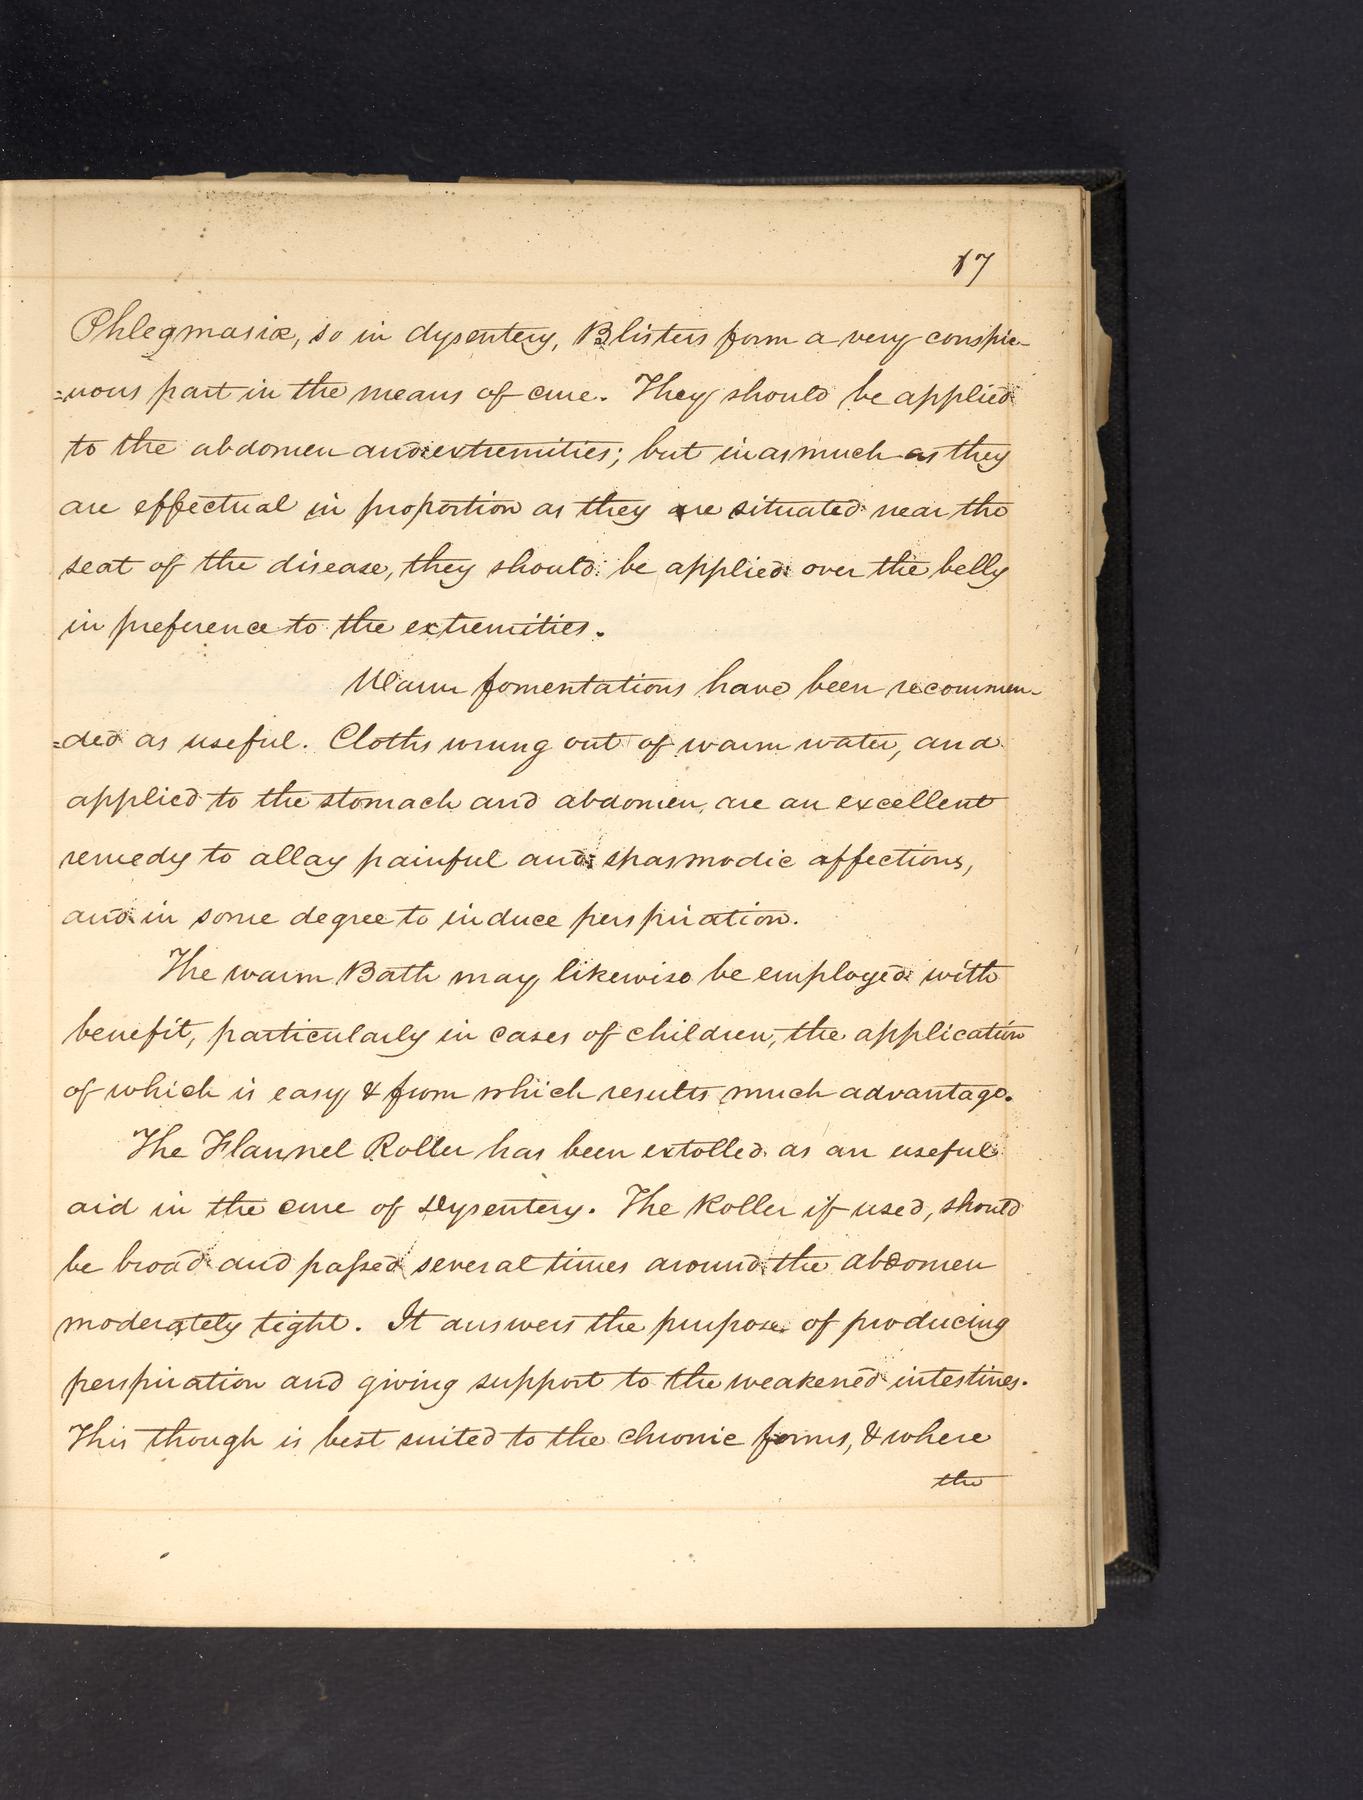 17
Phlegmasiæ, so in dysentery, Blisters form a very conspic-
=uous part in the means of cure. They should be applied
to the abdomen and extremities; but in as much as they
are effectual in proportion as they are situated near the
seat of the disease, they should be applied over the belly
in preference to the extremities.
Warm fomentations have been recommen-
=ded as useful. Cloths wrung out of warm water, and
applied to the stomach and abdomen, are an excellent
remedy to allay painful and spasmodic affections,
and in some degree to induce perspiration.
The warm Bath may likewise be employed with
benefit, particularly in cases of children, the application
of which is easy & from which results much advantage.
The Flannel Roller has been extolled as an useful
aid in the cure of Dysentery. The Roller if used, should
be broad and passed several times around the abdomen
moderately tight. It answers the purpose of producing
perspiration and giving support to the weakened intestines.
This though is best suited to the chronic forms, & where
the